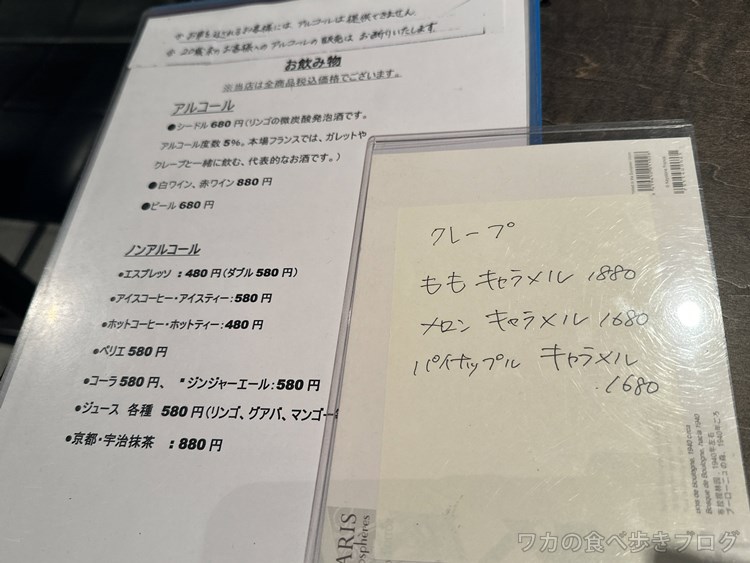 ※お車を運転されるお客様には アルコールは提供できません
※20歳未満のお客様へのアルコールの販売は お断りいたします
お飲み物
※当店は全商品税込価格でございます。
アルコール
●シードル 680 円(リンゴの微炭酸発泡酒です。
アルコール度数 5%。本場フランスでは、ガレットや
クレープと一緒に飲む、代表的なお酒です。)
●白ワイン、赤ワイン 880 円
●ビール 680 円
ノンアルコール
●エスプレッソ :480 円(ダブル 580 円)
●アイスコーヒー・アイスティー:580 円
●ホットコーヒー・ホットティー:480 円
●ペリエ 580 円
●コーラ 580 円、 ●ジンジャーエール:580 円
●ジュース 各種 580 円(リンゴ、グアバ、マンゴー
●京都・宇治抹茶 :880 円
クレープ
もも キャラメル 1880
メロン キャラメル 1680
パイナップル キャラメル
1680
Bois de Boulogne, 1940 circa
Bosque de Boulogne, hacia 1940
ブーローニュの森、1940年ごろ
PARIS
ワカの食べ歩きブログ